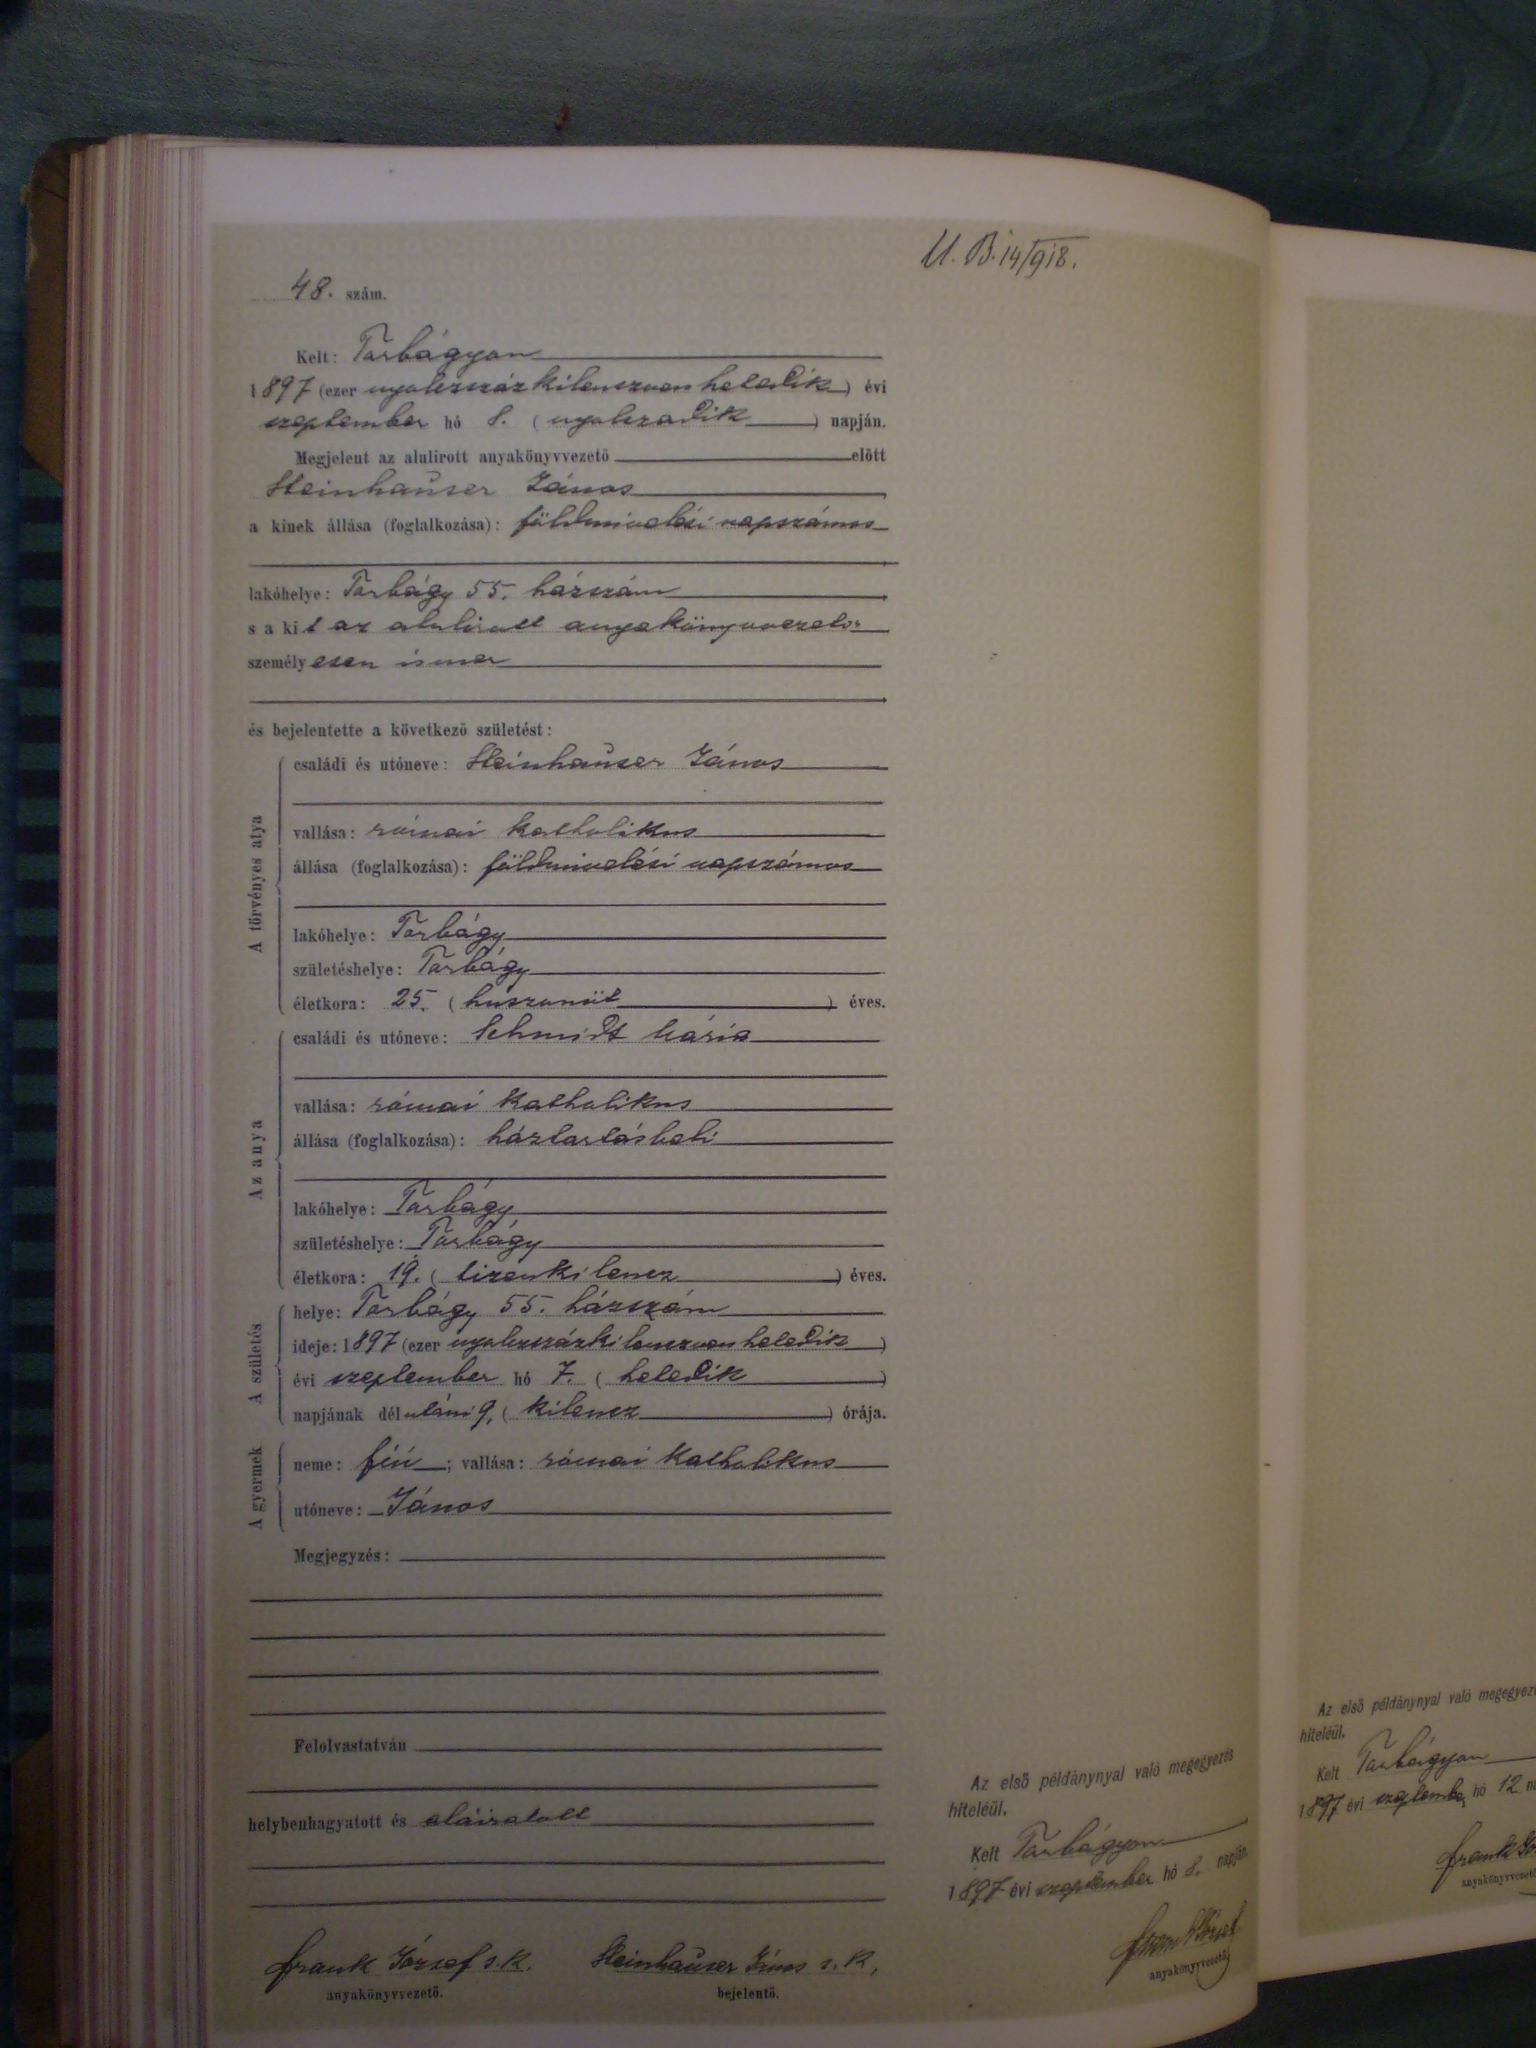 U. B. 14/918.
48. szám.
Kelt: Torbágyon
1897 (ezer nyolczszázkilenczvenhetedik) évi
szeptember hó 8. (nyolczadik) napján.
Megjelent az alulirott anyakönyvvezető előtt
Steinhauser János
a kinek állása (foglalkozása): földmivelési napszámos
lakóhelye: Torbágy 55. házszám
s a kit az alulirott anyakönyvvezető
személyesen ismer
és bejelentette a következő születést:
A törvényes atya
családi és utóneve: Steinhauser János
vallása: római katholikus
állása (foglalkozása): földmivelési napszámos
lakóhelye: Torbágy
születéshelye: Torbágy
életkora: 25. (huszonöt) éves.
Az anya
családi és utóneve: Schmidt Mária
vallása: római katholikus
állása (foglalkozása): háztartásbeli
lakóhelye: Torbágy
születéshelye: Torbágy
életkora: 19. (tizenkilencz) éves.
A születés
helye: Torbágy 55. házszám
ideje: 1897 (ezer nyolczszázkilenczvenhetedik)
évi szeptember hó 7. (hetedik)
napjának délutáni 9, (kilencz) órája.
A gyermek
neme: fiú; vallása: római katholikus
utóneve: János
Megjegyzés:
Felolvastatván
helybenhagyatott és aláiratott
Frank József s.k. Steinhauser János s.k.
anyakönyvvezető. bejelentő.
Az első példánynyal való megegyezés
hiteléül.
Kelt Torbágyon
1897 évi szeptember hó 8. napján
Frank József
anyakönyvvezető
Az első példánynyal való
hiteléül.
Kelt Torbágyon
1897 évi szeptember hó 12
Frank